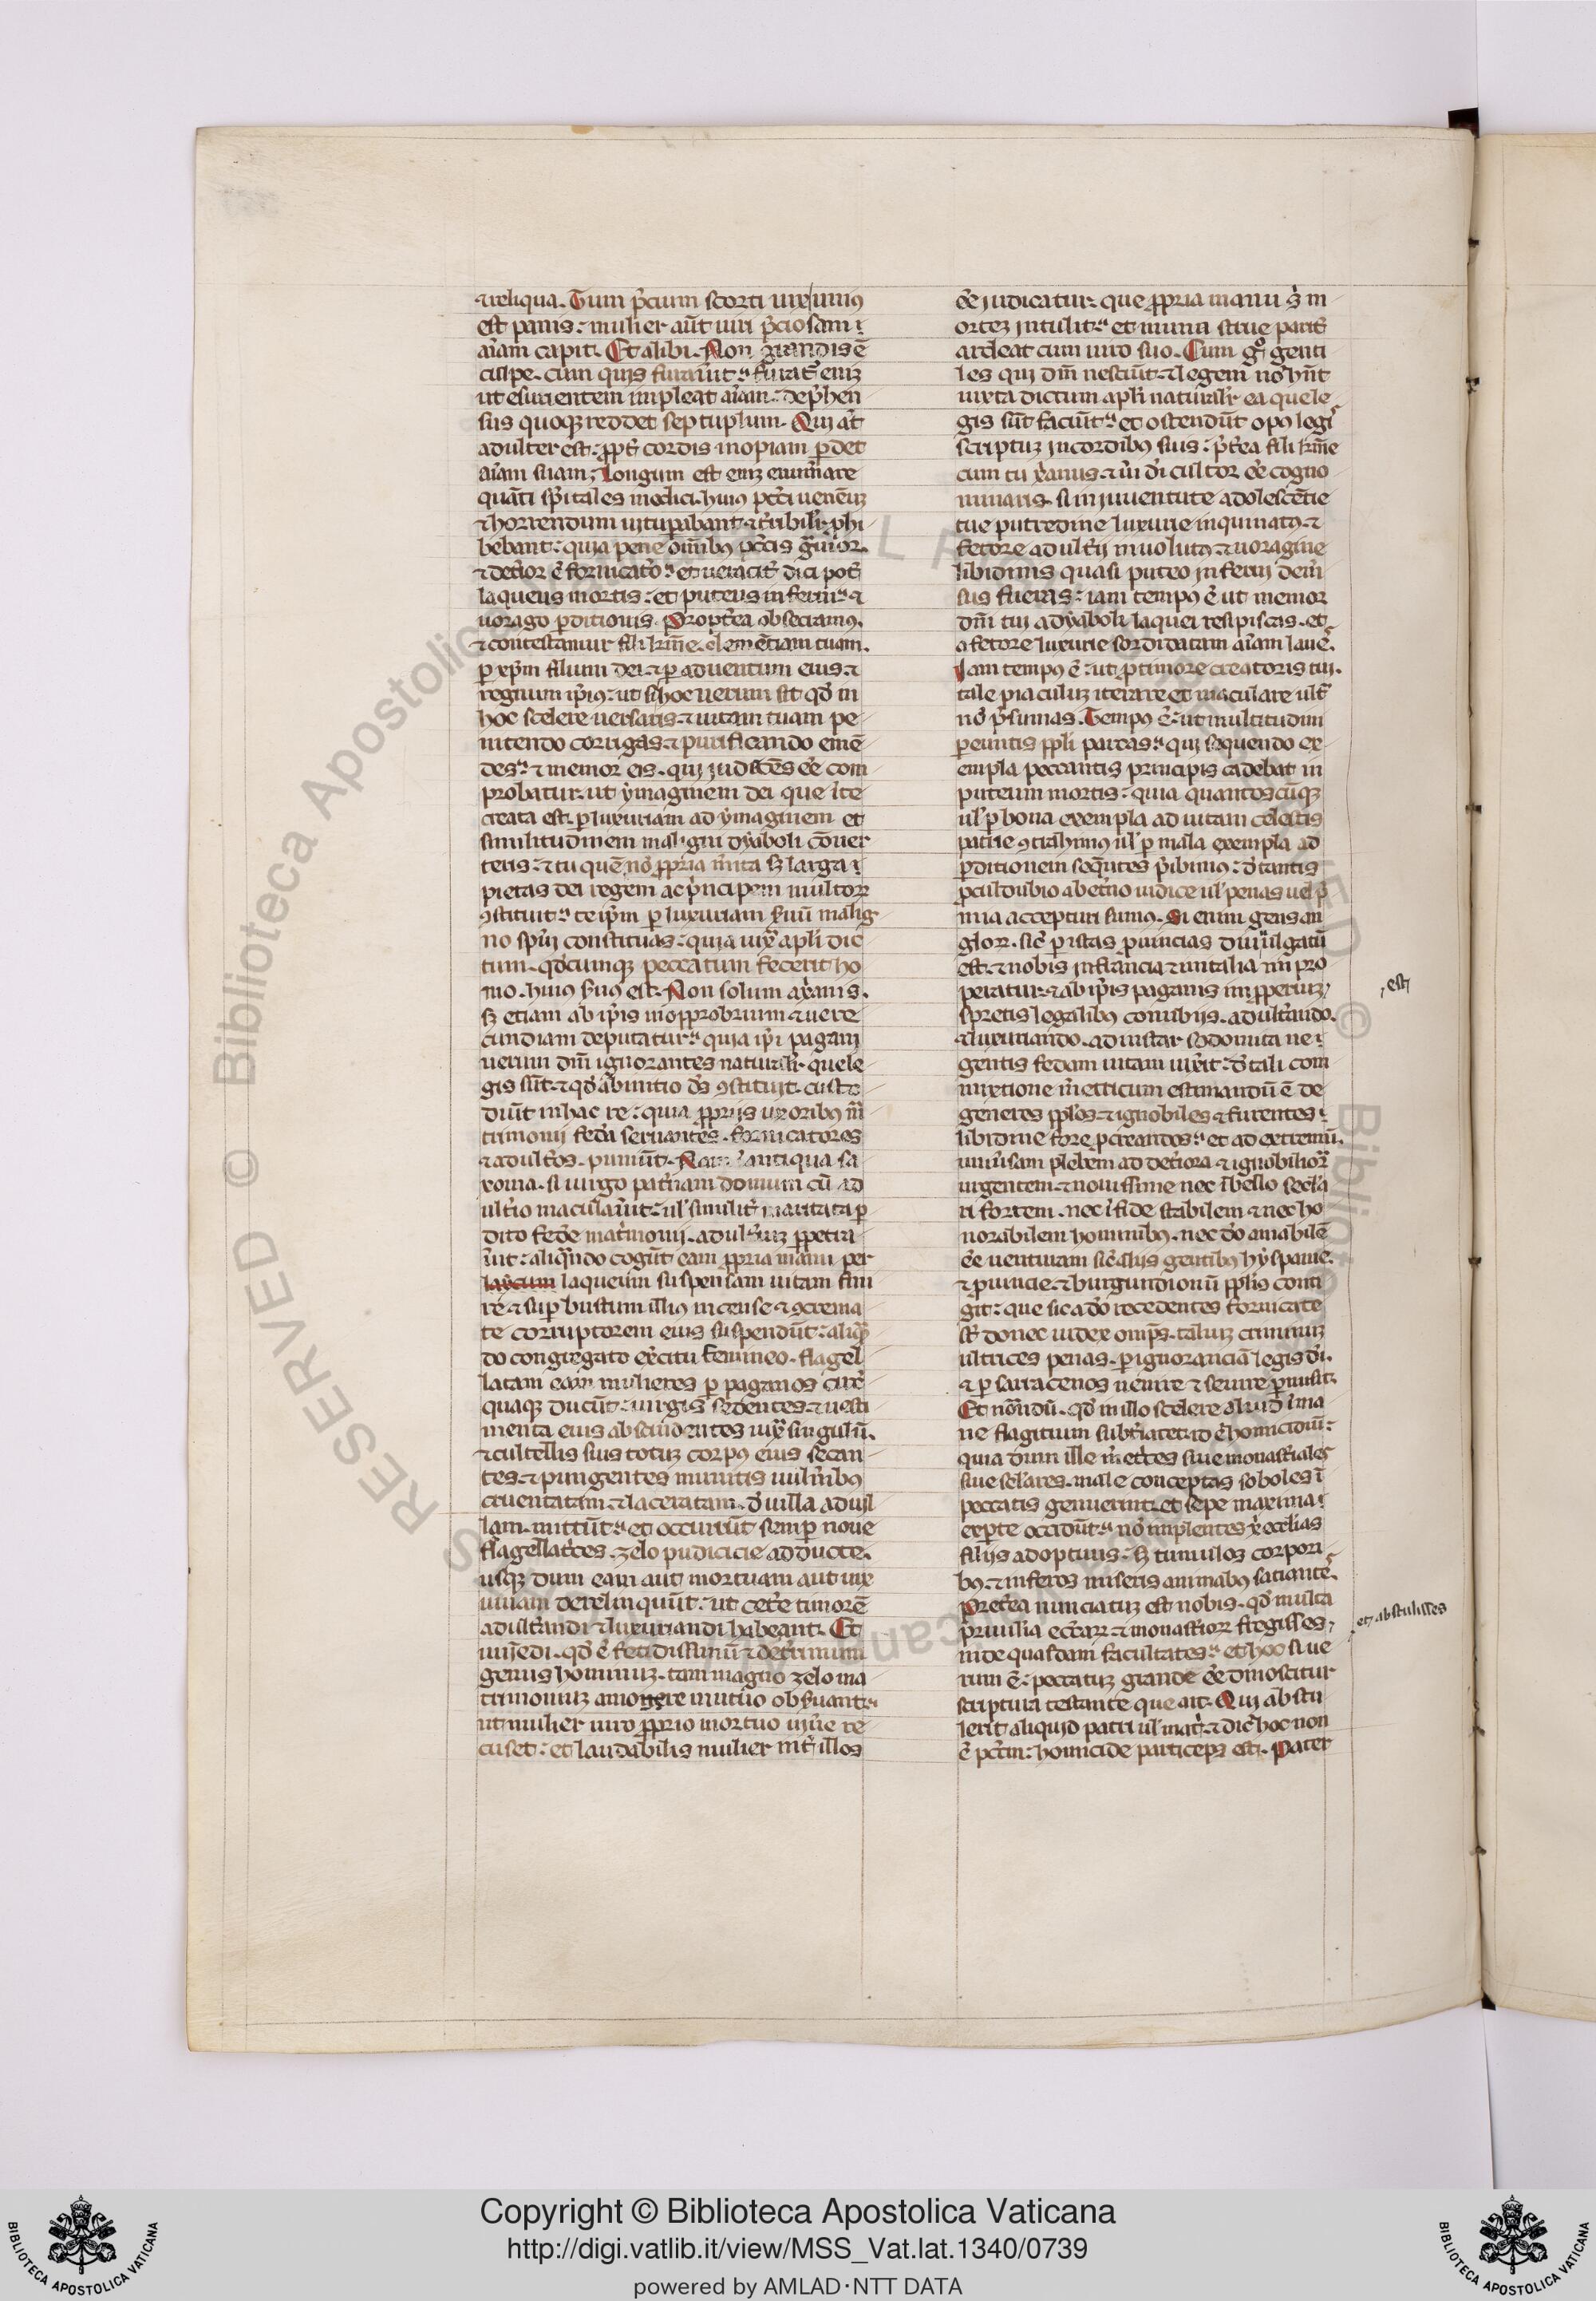 ⁊ reliqua. Tum p̄cium scorti uix unius
est panis: mulier aūt uiri p̄ciosam
aīam capit. Et alibi. Non grandis ē
culpe. cum quis furatus fuit: furat᷑ enī
ut esurientem impleat aīam: dep̄hen
sus quoq; reddet septuplum. Qui aūt
adulter est: ꝓpt̄ cordis inopiam ꝑdet
aīam suam. Longum est enī enum̄are
quāti sp̄itales medici huiꝰ pctī uenenū
⁊ horrendum uitupabant ⁊ t̄ribilit̄ ꝓhi
bebant: quia pene om̄ibꝰ pctīs grauior
⁊ det̄ior ē fornicatō: et ueracit̄ dici pot̄
laqueus mortis: et puteus inferni: ⁊
uorago ꝑditionis. Propt̄ea obsecramꝰ.
⁊ contestamur fili kr̄me clemētiam tuam.
ꝑ xp̄m filium dei ⁊ ꝑ aduentum eius ⁊
regnum ip̄iꝰ: ut si hoc uerum sit qd̄ in
hoc scelere uersaris ⁊ uitam tuam pe
nitendo corrigas ⁊ purificando emē
des: ⁊ memor sis. qui iudicēs eē com
probatur ut ymaginem dei que in te
creata est. ꝑ luxuriam ad ymaginem et
similitudinem maligni dyaboli cōuer
teris: ⁊ tu quē nō ꝓpria m̄ita sꝫ larga
pietas dei regem ac p̄ncipem multoꝝ
ꝯstituit: te ip̄m ꝑ luxuriam s̄uū malig
no sp̄ui constituas: quia iuxͣ apl̄i dic
tum. qd̄cumq; peccatum fecerit ho
mo. huiꝰ s̄uus est. Non solum a xp̄ianis.
sꝫ etiam ab ip̄is in opprobrium ⁊ uere
cundiam deputatur: quia ip̄i pagani
uerum dm̄ ignorantes naturalit̄ que le
gis sūt ⁊ qd̄ ab initio ds̄ ꝯstituit. custo
diūt in hac re: quia ꝓpriis uxoribus m̄a
trimonii feda seruantes. fornicatores
⁊ adult̄os. puniūt. Nam in antiqua sa
xonia. si uirgo pat̄nam domum cū ad
ult̄io maculau̇it: ul̓ similit̄ maritata ꝑ
dito fedē mat̄imonii. adult̄iū ꝓpetra
u̇it: aliqn̄do cogūt eam ꝓpria manu per
laqueum suspensam uitam fini
re: ⁊ sup̄ bustum illiꝰ incense ⁊ ꝯcrema
te corruptorem eius suspendūt: aliqn̄
do congregato ex̄citu femineo. flagel
latam eam mulieres ꝑ paganos circū
quaq; ducūt: uirgis cedentes ⁊ uesti
menta eius abscindentes iuxͣ singulū.
⁊ cultellis suis totū corpꝰ eius secan
tes ⁊ pungentes minutis uuln̄ibꝰ
cruentatam ⁊ laceratam. de uilla ad uil
lam mittūt: et occurrūt semp̄ noue
flagellat̄ces. zelo pudicicie adducte.
usq; dum eam aut mortuam aut uix
uiuam derelinquūt: ut cet̄e timorē
adult̄andi ⁊ luxuriandi habeant. Et
uinedi. qd̄ ē fetidissimū ⁊ det̄rimum
genus hominū. tam magno zelo ma
trimoniū amore mutuo obs̄uant:
ut mulier uiro ꝓprio mortuo uiu̇e re
cuset: et laudabilis mulier int̄ illos
eē iudicatur. que ꝓpria manu s̄ m
ortē intulit: et in una strue parit̄
ardeat cum uiro suo. Cum gͦ genti
les qui dm̄ nesciūt ⁊ legem nō hn̄t
iuxta dictum apl̄i naturalit̄ ea que le
gis sūt faciūt: et ostendūt opꝰ legis
scriptū in cordibꝰ suis: p̄t̄ea fili kr̄me
cum tu xp̄ianus ⁊ ūi di cultor eē cogno
minaris. si in iuuentute adolescētie
tue putredine luxurie inquinatꝰ ⁊
fetore adult̄ii inuolutꝰ ⁊ uoragine
libidinis quasi puteo inferni dem̄
sus fueras: iam tempꝰ ē ut memor
dm̄ tui a dyaboli laquei resipiscas. et
a fetore luxurie sordidatam aīam lauēs.
Iam tempꝰ ē: ut ꝓ timore creatoris tui.
tale piaculū iterare et maculare ult̄
nō p̄sumas. Tempꝰ ē: ut multitudini
pereuntis ppl̄i parcas: qui sequendo ex
empla peccantis principis cadebat in
puteum mortis: quia quantoscūq;
ul̓ ꝑ bona exempla ad uitam celestis
patrie ꝯtrahimꝰ ul̓ ꝑ mala exempla ad
ꝑditionem seqn̄tes ꝑibimꝰ: d̄ tantis
ꝓculdubio ab et̄no iudice ul̓ penas uel p̄
mia accepturi sumꝰ. Si enim gens an
gloꝝ. sic̄ ꝑ istas ꝓuincias diuulgatū
est. ⁊ nobis in francia ⁊ in italia imꝓ
peratur ⁊ ab ip̄is paganis imꝓpertū,
spretis legalibꝰ conubiis. adult̄ando.
⁊ luxuriando. ad instar sodomitane
gentis fedam uitam uix̄it: d̄ tali com
mixtione m̄etricum estimandū ē de
generes ppl̄os ⁊ ignobiles ⁊ furentes
libidine fore ꝓcreandos: et ad extremū.
uniu̇sam plebem ad det̄iora ⁊ ignobiliora
uirgentem ⁊ nouissime nec in bello secula
ri fortem. nec in fide stabilem ⁊ nec ho
norabilem hominibꝰ. nec dō amabilē
eē uenturam sic̄ aliis gentibꝰ hyspanie.
⁊ ꝓuincie ⁊ burgundionū ppl̄is conti
git: que sic a dō recedentes fornicate
st̄ donec iudex omp̄s. taliū criminū
ultrices penas. ꝑ ignoranciā legis di.
⁊ ꝑ sarracenos uenire ⁊ seuire ꝑmisit.
Et nōndū. qd̄ in illo scelere aliud in ma
ne flagitium subt̄latet id ē homicidiū:
quia dum ille m̄etrices siue monasteriales
siue sclares. male conceptas soboles in
peccatis genuerint. et sepe maxima
ex parte occidūt: nō implentes xp̄i ecclīas
filiis adoptiuis: sꝫ tumulos corpori
bꝰ. ⁊ inferos miseris animabꝰ saciantes.
Pret̄ea nunciatū est nobis. qd̄ multa
priuilegia eccl̄iaꝝ ⁊ monast̄ioꝝ fregisses,
inde quasdam facultates: et hoc si ue
rum ē: peccatū grande eē dinoscitur
scriptura testante que ait. Qui abstu
lerit aliquid patri ul̓ matri ⁊ dic̄ hoc non
ē pctm̄: homicide particeps est. Pater
, est,
et abstulisses
Copyright © Biblioteca Apostolica Vaticana
http://digi.vatlib.it/view/MSS_Vat.lat.1340/0739
powered by AMLAD·NTT DATA
BIBLIOTECA APOSTOLICA VATICANA
BIBLIOTECA APOSTOLICA VATICANA